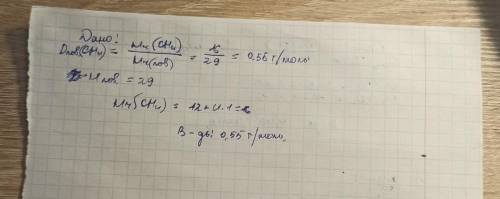 Дано:
Dпов(CH₄) = Mr(CH₄) / Mr(пов) = 16 / 29 = 0,55 г/моль
Mпов = 29
Mr(CH₄) = 12+4·1=
В-дь: 0,55 г/моль.